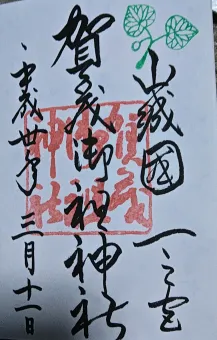 山城國一之宮
賀茂御祖神社
平成丗年三月十一日
賀茂
御祖
神社